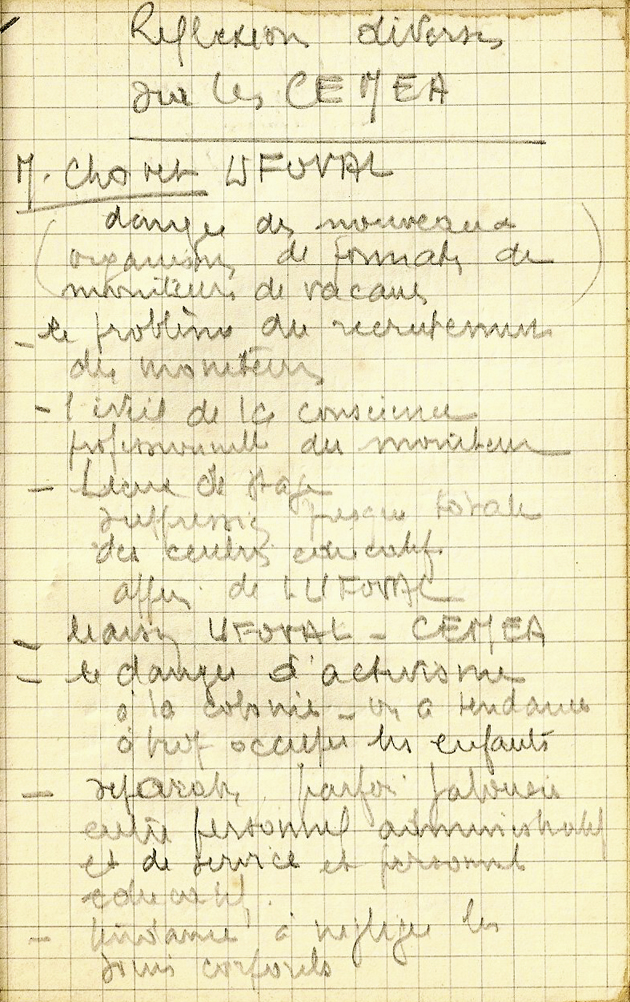 Réflexion diverses
sur les CEMEA
M. UFOVAL
(danger des nouveaux
organismes de formats de
moniteurs de vacances)
- le problème du recrutement
des moniteurs
- l'éveil de la conscience
professionnelle du moniteur
- de stage
suppression presque totale
des centres éducatifs
de l'UFOVAL
- liaison UFOVAL - CEMEA
- le danger d'activisme
à la colonie - on a tendance
à trop occuper les enfants
- séparat, parfois jalousie
entre personnel administratif
et de service et personnel
éducatif.
- tendance à négliger les
soins corporels